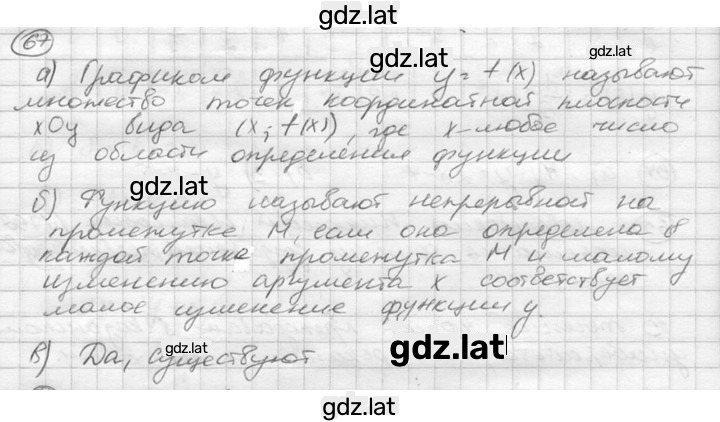 gdz.lat
67
gdz.lat
а) Графиком функции y = f(x) называют
множество точек координатной плоскости
xOy вида (x; f(x)), где x-любое число
из области определения функции
gdz.lat
б) Функцию называют непрерывной на
промежутке M, если она определена в
каждой точке промежутка M и малому
изменению аргумента x соответствует
малое изменение функции y.
в) Да, существуют
gdz.lat
gdz.lat
gdz.lat